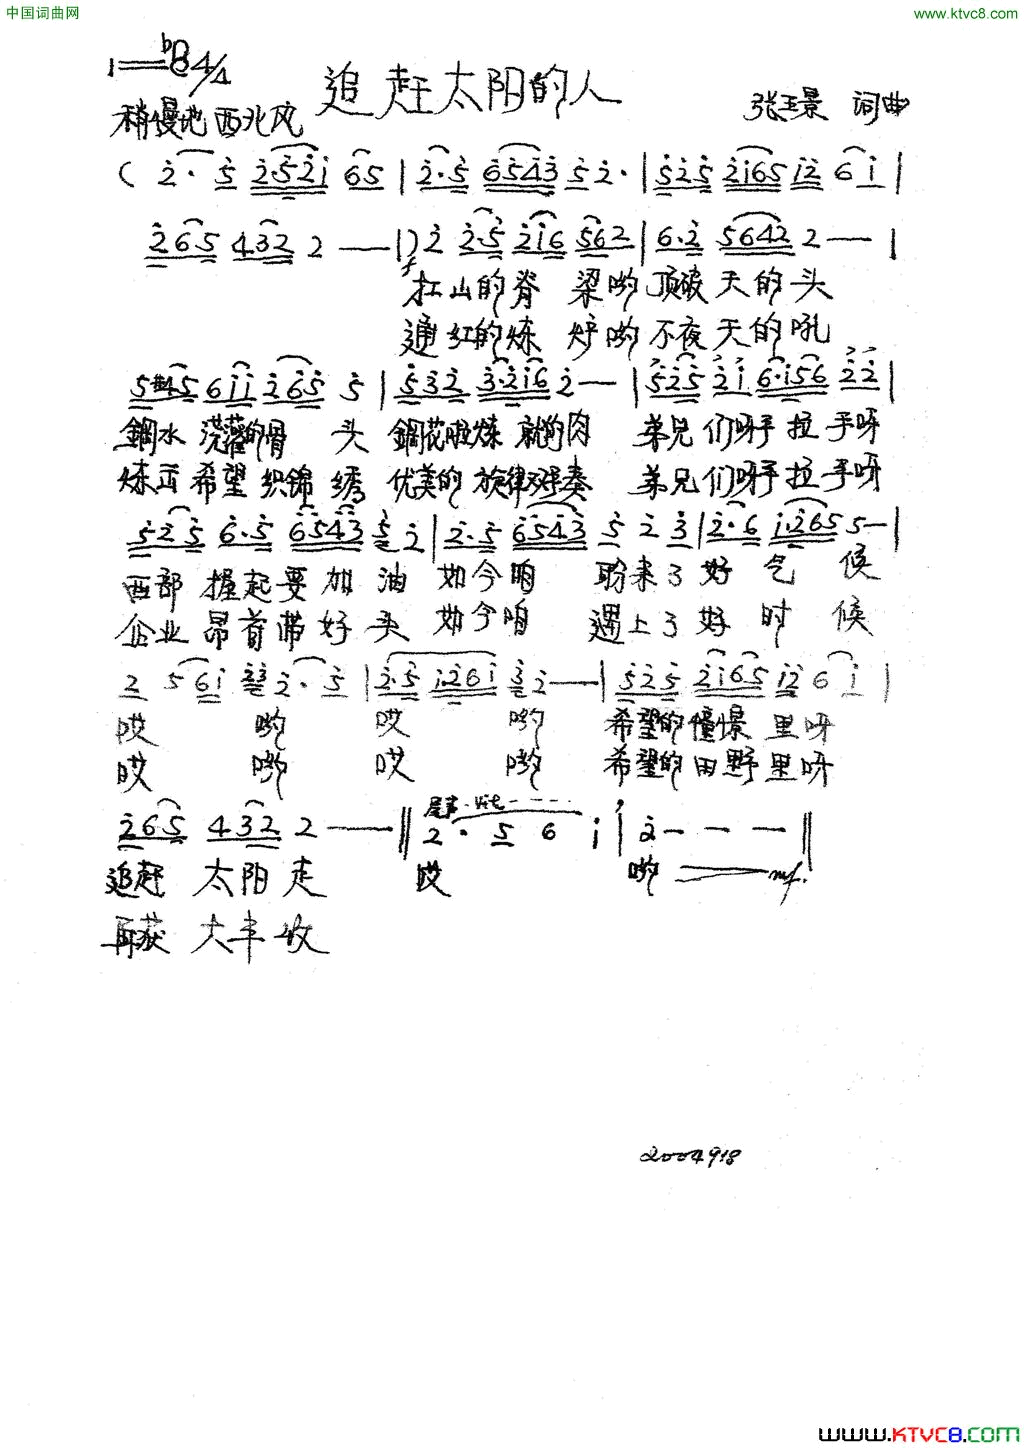 中国词曲网
www.ktvc8.com
1=♭B 4/4
追赶太阳的人
稍慢地 西北风
张玉景 词曲
( 2· 5 2·521 65 | 2·5 6543 52· | 525 2165 12 6 1 |
265 432 2 — — |) 2 2·5 216 562 | 6·2 5642 2 — — |
f
扛山的脊 梁哟 顶破天的头
通红的炼 炉哟 不夜天的吼
5#45 611 265 5 | 532 3·216 2 — — | 525 21 6·156 22 |
钢水浇灌的骨 头 钢花 炼就的肉 弟兄们呀手拉手呀
炼出希望织锦绣 优美的旋律 奏 弟兄们呀手拉手呀
525 6·5 6543 5 2 | 2·5 6543 5 2 3 | 2·6 1·265 5 — |
西部握起要加油 如今咱 盼来了好气候
企业昂首带好头 如今咱 遇上了好时候
2 561 23 2· 5 | 2·5 1·261 32 — — | 525 2165 12 6 1 |
哎 哟 哎 哟 希望的憧憬里呀
哎 哟 哎 哟 希望的田野里呀
265 432 2 — — || 尾声·rit - - - -
2· 5 6 1 | 2 — — — ||
追赶 太阳走 哎 哟 mf.
再获 大丰收
2004918
www.KTVC8.com